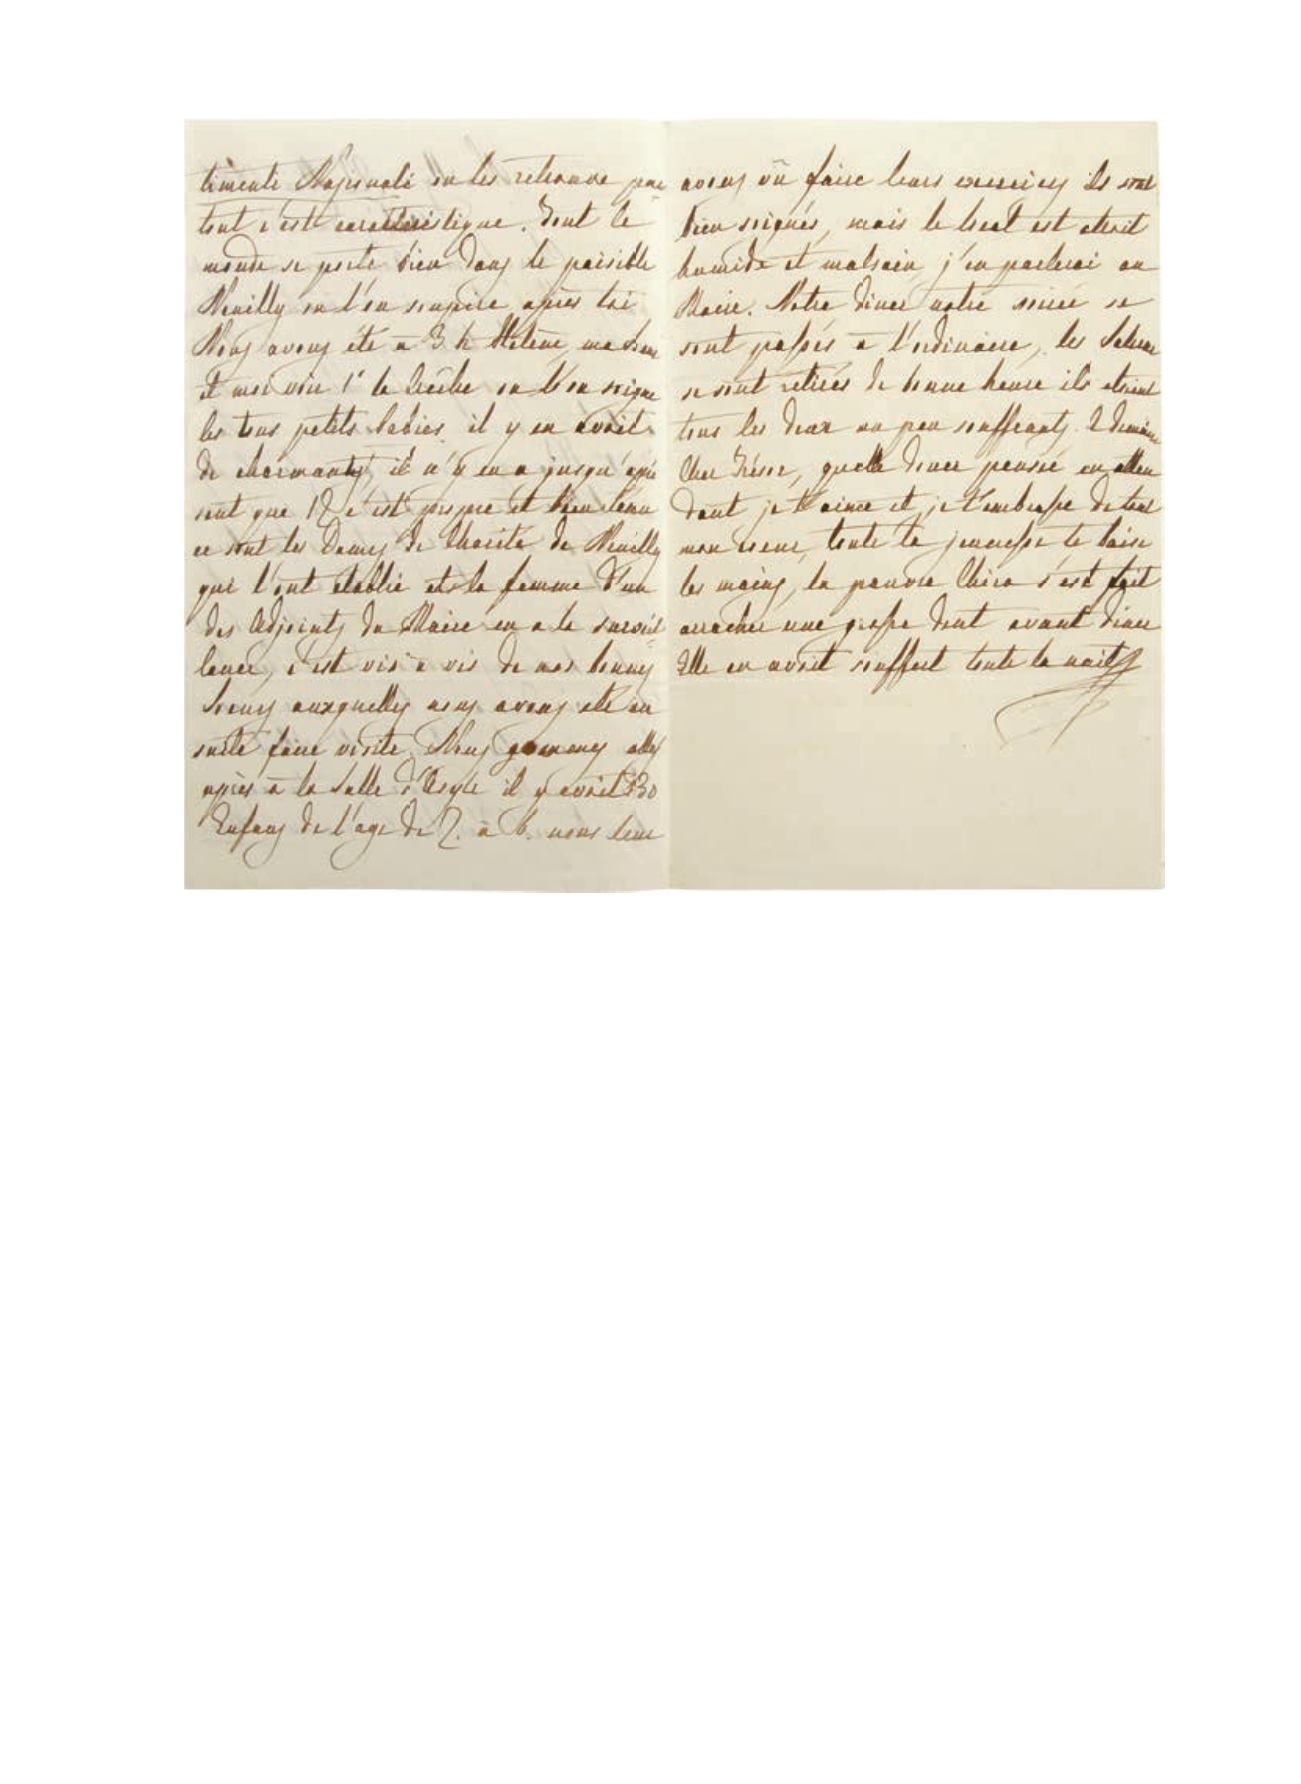 timents Nationale on les retrouve par
tout c'est caractéristique. Tout le
monde se porte bien dans le paisible
Neuilly où l'on soupire après toi
Nous avons été à 3 h Hélène, ma Sœur
et moi voir 1° la Crèche où l'on soigne
les tous petits babies, il y en avait
de charmants, il n'y en a jusqu'à pré
sent que 12 c'est propre et bien tenu
ce sont les Dames de Charité de Neuilly
qui l'ont établie et la femme d'un
des Adjoints du Maire en a la surveil
lance, c'est vis à vis de nos bonnes
Sœurs auxquelles nous avons été en
suite faire visite. Nous sommes allés
après à la Salle d'Asyle il y avait 130
Enfans de l'age de 2. à 6. nous leur
avons vû faire leurs exercices ils sont
bien soignés, mais le local est etroit
humide et malsain j'en parlerai au
Maire. Notre diner notre soirée se
sont passés à l'ordinaire, les
se sont retirés de bonne heure ils etoient
tous les deux un peu souffrants. à demain
Cher Trésor, quelle douce pensée en atten
dant je t'aime et je t'embrasse de tout
mon cœur, toute ta jeunesse te baise
les mains, la pauvre Chica s'est fait
arracher une grosse dent avant diner
Elle en avoit souffert toute la nuit